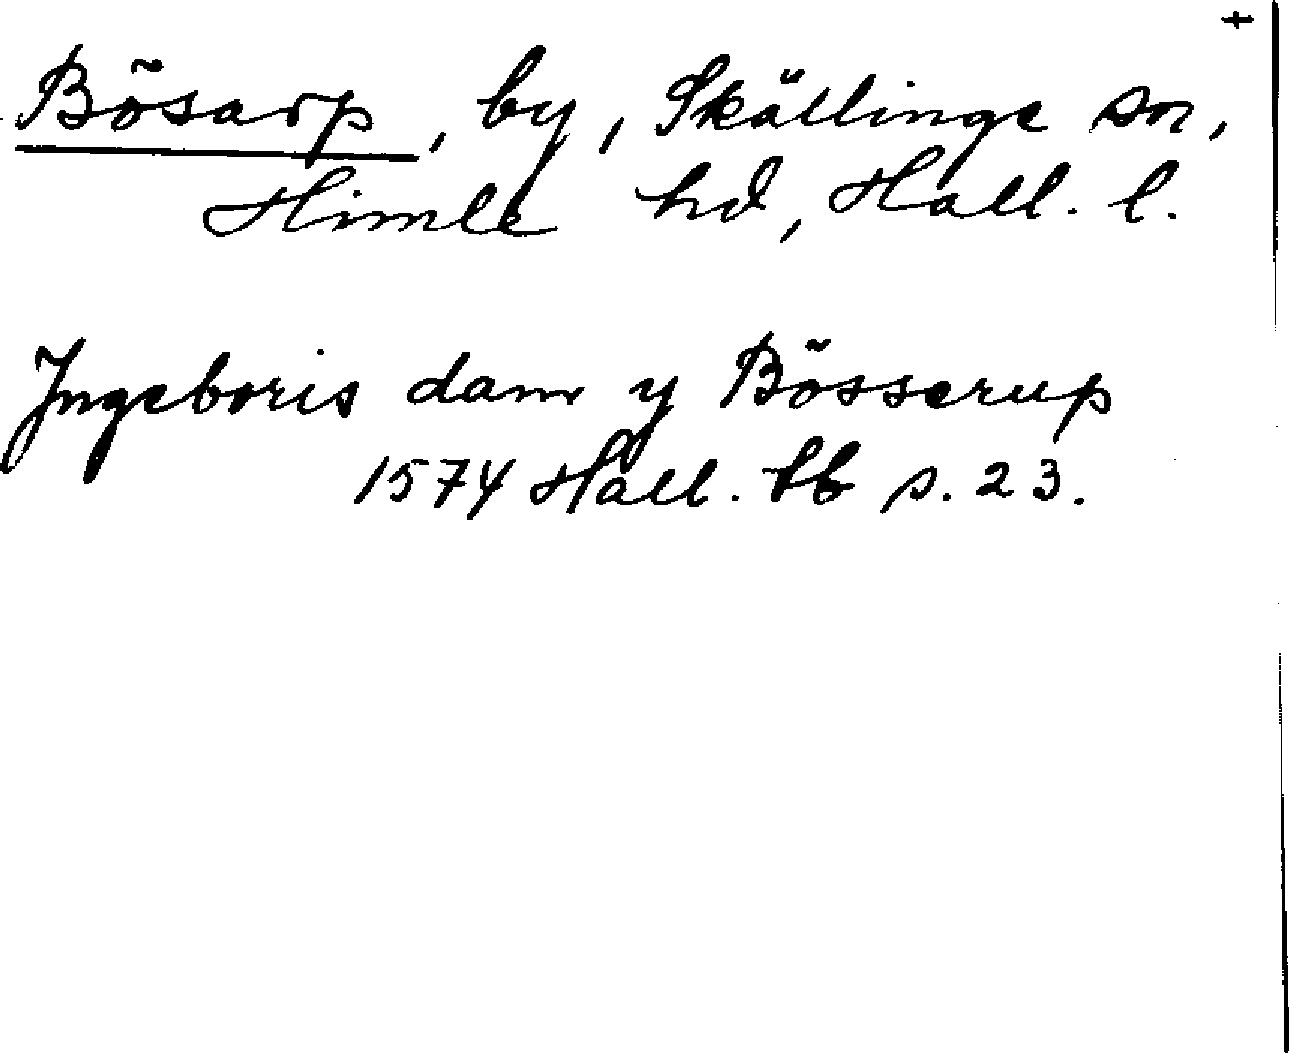 +
Bösarp, by, Skällinge sn,
Himle hd, Hall. l.
Ingeboris dam y Bösserup
1574 Hall. lb s. 23.